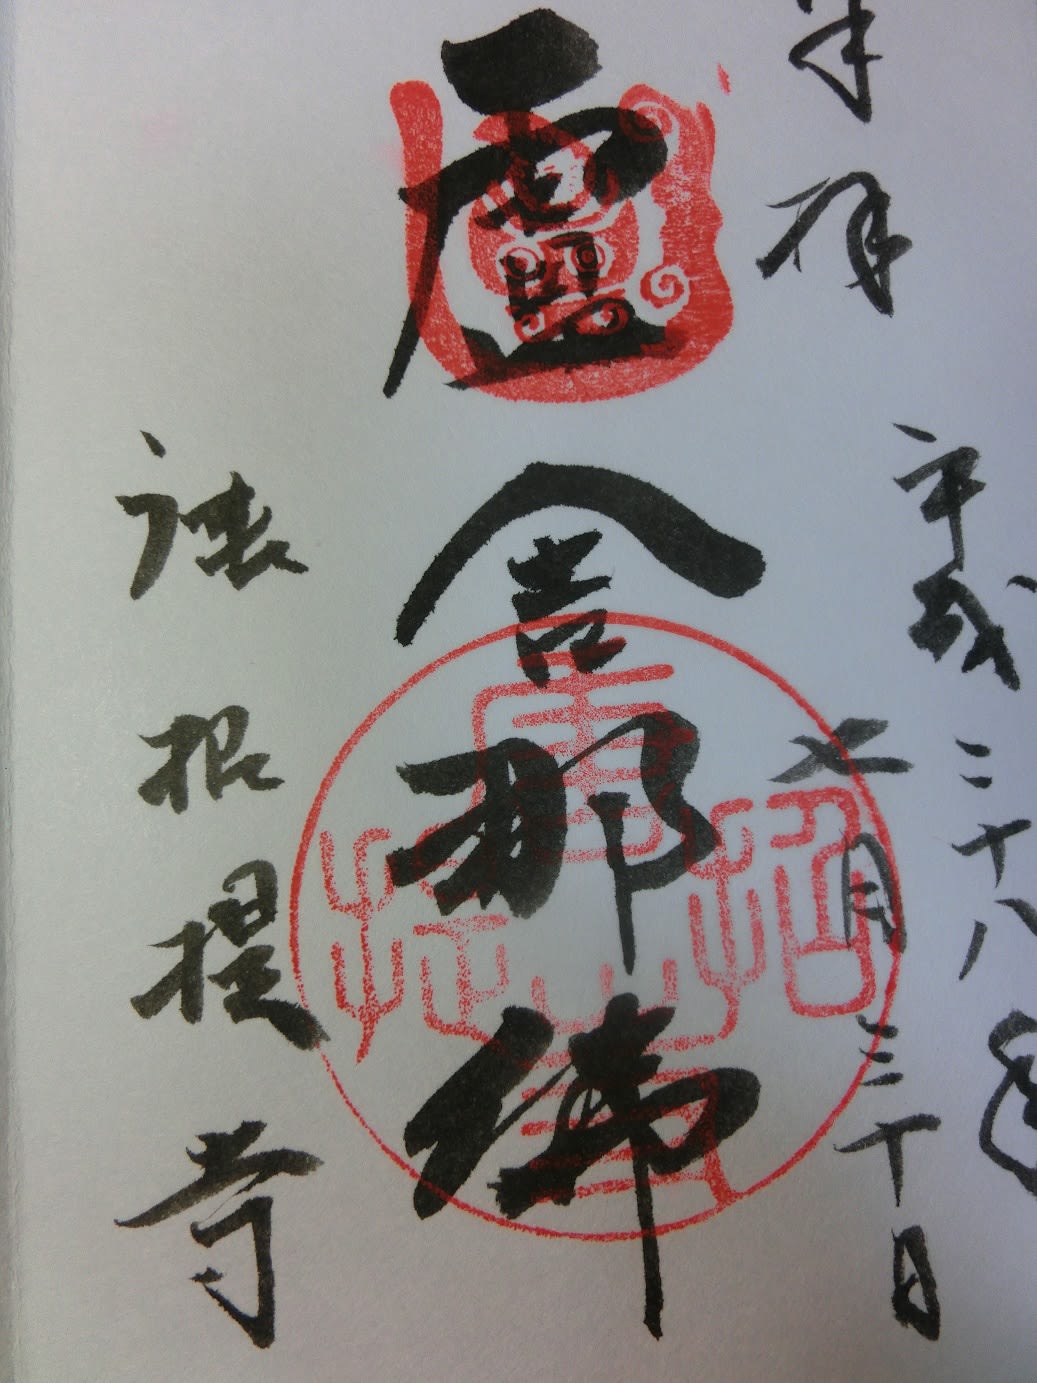 奉拝
平成二十八年
七月三十日
盧舎那佛
唐招提寺